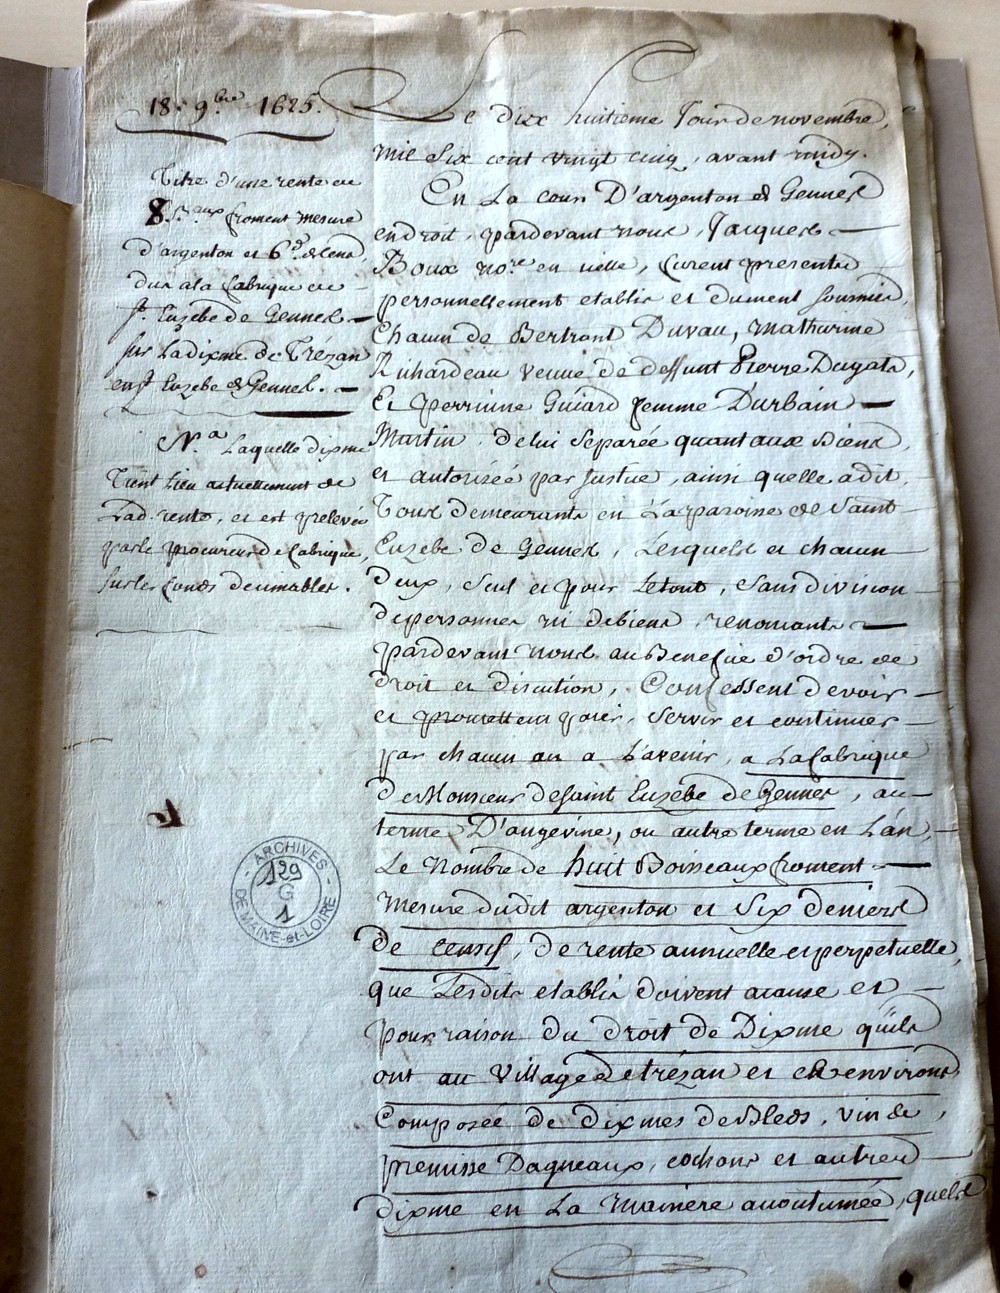 18. 9.bre 1625.
Titre d'une rente de
8 Bx.aux froment mesure
d'argenton et 6 d. de Cens,
due a la fabrique de
St. Euzebe de Gennes
sur La dixme de Trézan
en St. Euzebe de Gennes.
Na. Laquelle dixme
Tient Lieu actuellement de
Lad. rente, et est prelevée
par le procureur de fabrique,
sur les fonds decimables.
Le dix huitieme Jour de novembre,
mil six cent vingt cinq, avant midy.
En La cour D'argenton et Gennes
endroit, pardevant nous, Jacques
Boux no.re en icelle, furent presents
personnellement etablis et dument soumis,
Chacun de Bertrant Duvau, Mathurine
Richardeau veuve de deffunt Pierre Dugats,
Et perrinne Guiard femme D'urbain
Martin, de lui separée quant aux Biens,
et autorisée par Justice, ainsi quelle a dit,
Tous demeurants en La paroisse de Saint
Euzebe de Gennes, Lesquels et chacun
deux, seul et pour Letout, sans division
de personnes ni de biens, renonceants
pardevant nous au Benefice d'ordre de
droit et discution, Confessent devoir
et promettent paier, servir et continuer
par chacun an a L'avenir, a La fabrique
de Monsieur de saint Euzebe de Gennes, au
terme D'angevine, ou autre terme en L'an,
Le Nombre de huit Boisseaux froment
Mesure dudit argenton et Six deniers
de censif, de rente annuelle et perpetuelle,
que Lesdits etablis doivent acause et
pour raison du droit de Dixme qu'ils
ont au Village de trézan et es environs
Composée de dixmes de Bleds, vin de,
premisse Dagneaux, cochons et autres
dixme en La Maniere acoutumée, quels
ARCHIVES
129
G
1
DE MAINE-et-LOIRE